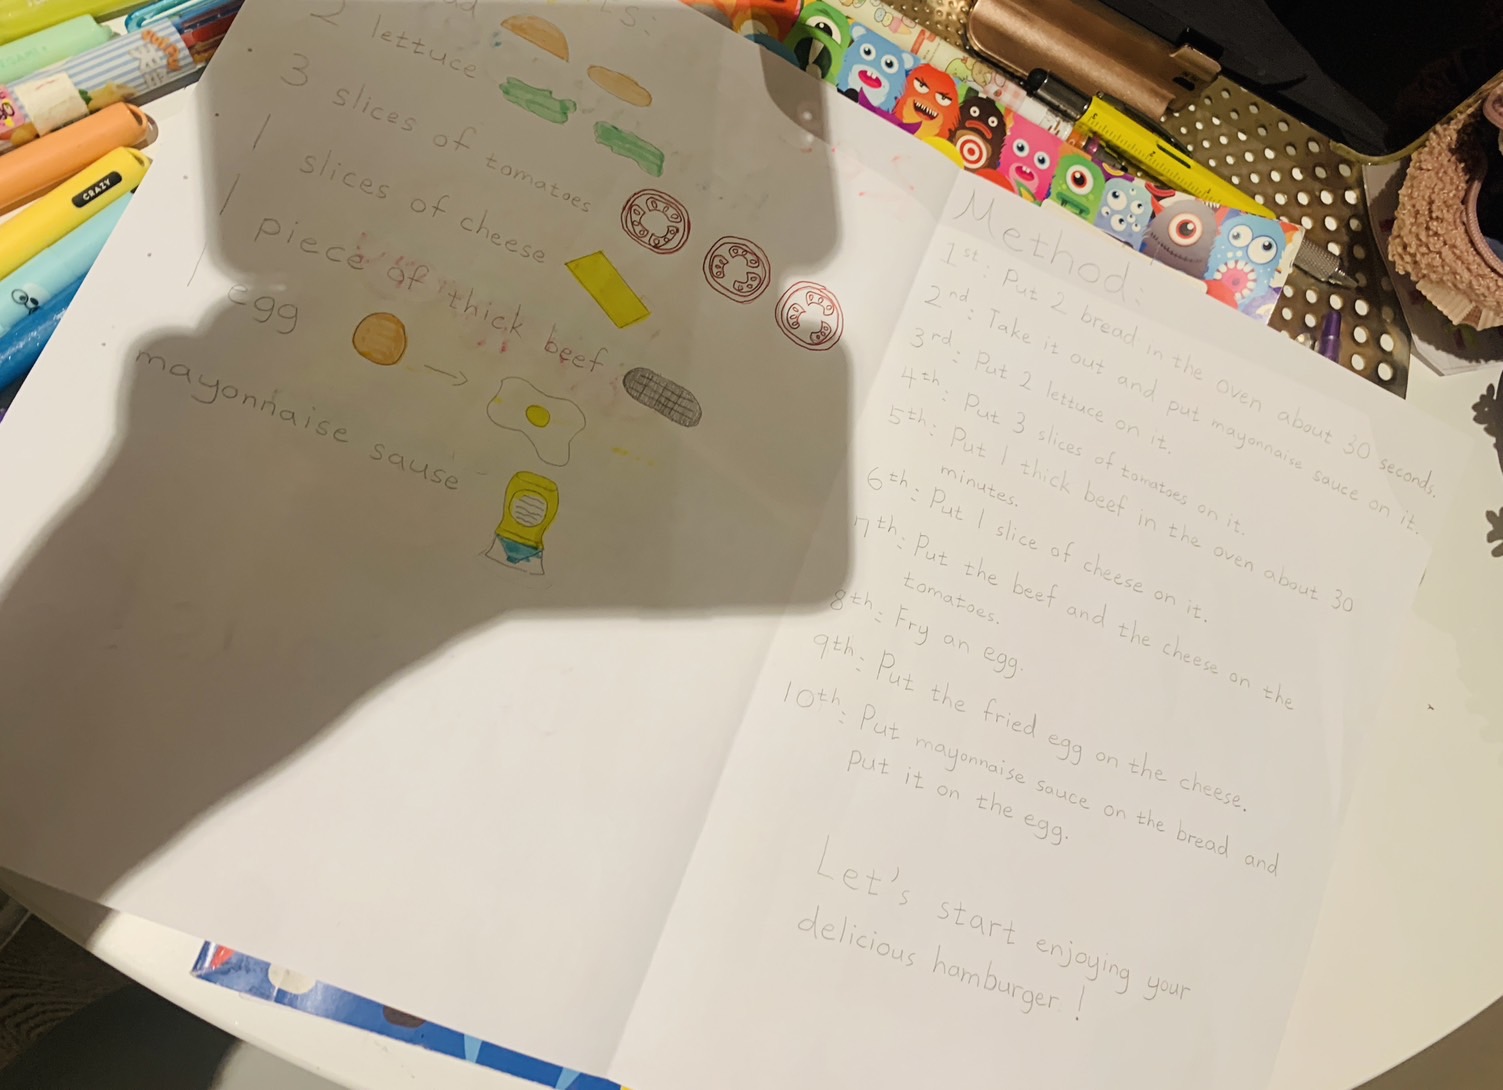 2 lettuce
3 slices of tomatoes
1 slices of cheese
1 piece of thick beef
1 egg
mayonnaise sause
Method:
1st: Put 2 bread in the oven about 30 seconds.
2nd: Take it out and put mayonnaise sauce on it.
3rd: Put 2 lettuce on it.
4th: Put 3 slices of tomatoes on it.
5th: Put 1 thick beef in the oven about 30
minutes.
6th: Put 1 slice of cheese on it.
7th: Put the beef and the cheese on the
tomatoes.
8th: Fry an egg.
9th: Put the fried egg on the cheese.
10th: Put mayonnaise sauce on the bread and
put it on the egg.
Let's start enjoying your
delicious hamburger!
CRAZY